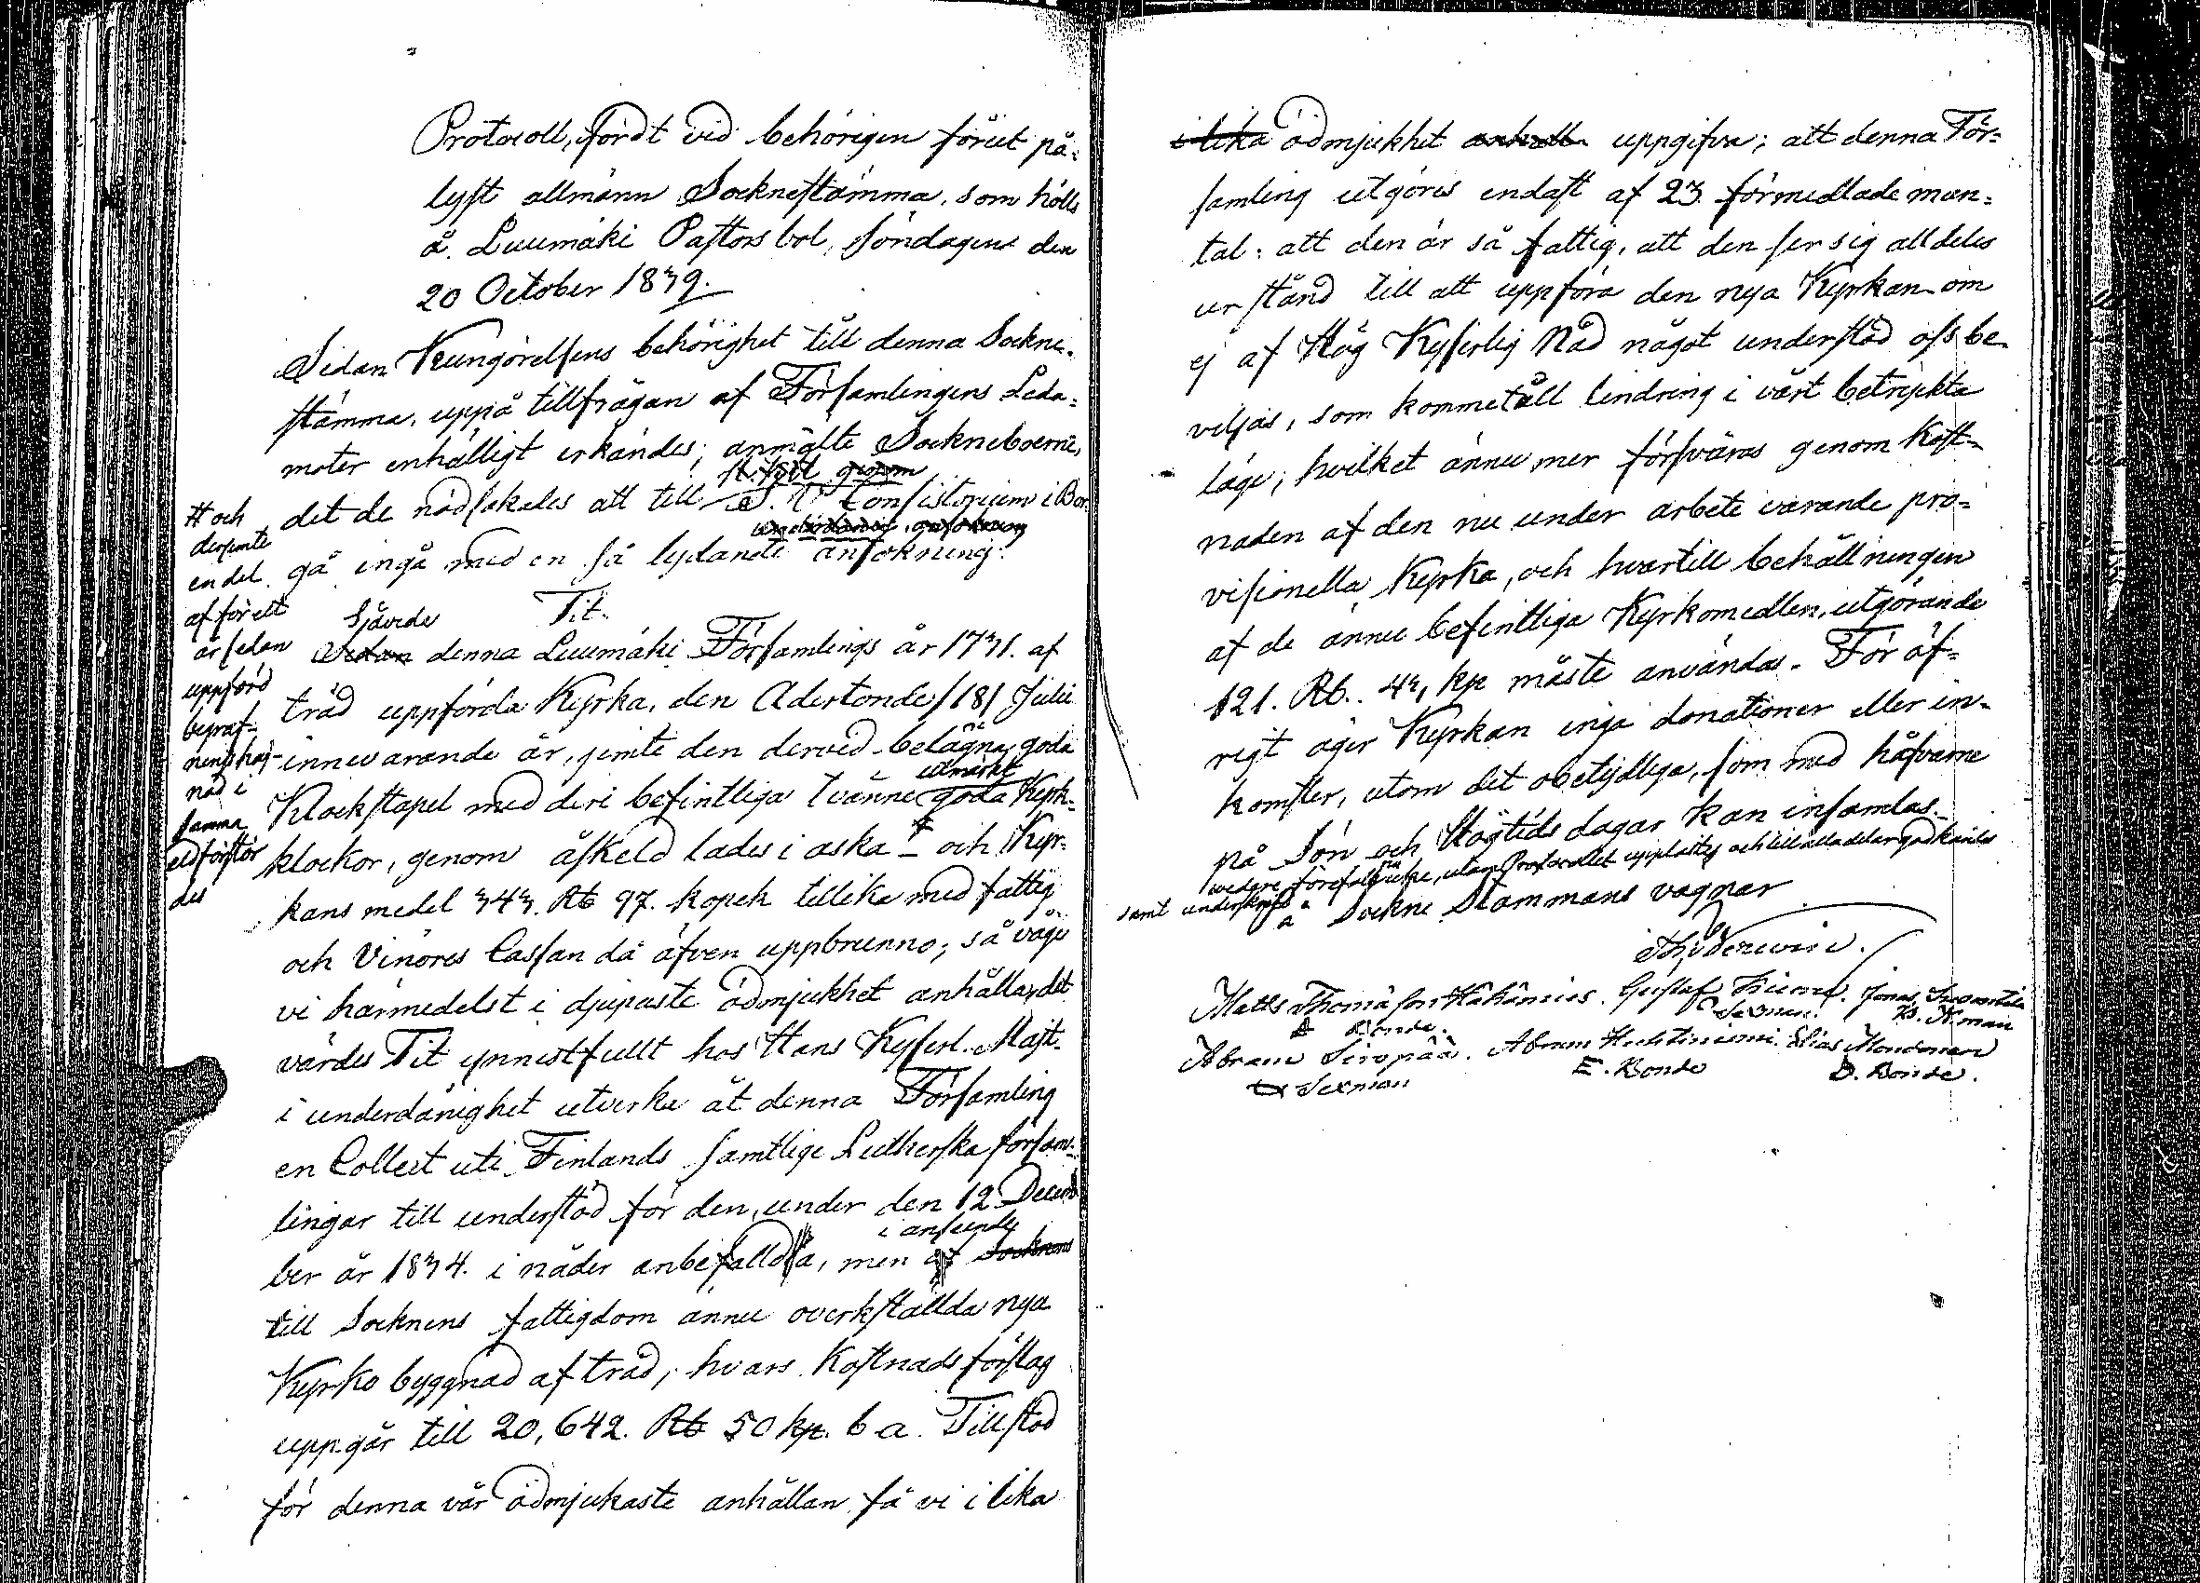 Protocoll, fördt vid behörigen förut på-
lyst allmänn Socknestämma, som hölls
å Luumäki Pastorsbol, söndagen den
20 October 1839.
Sedan Kungörelsens behörighet till denna Sockne-
stämma, uppå tillfrågan af Församlingens Leda-
moter enhälligt erkändes; anmälte Sockneboerne,
det de nödsakades att till S. V. Consistorium i Bor
gå ingå med en så lydande ansökning:
Tit.
Sjävide
Sedan denna Luumäki Församlings år 1731. af
träd uppförda Kyrka, den Adertonde /18/ Julii
innevarande år, jemte den dervid belägne goda
Klockstapel med deri befintliga tvänne utmärkt goda Kyrk-
klockor, genom åskeld lades i aska # och Kyr-
kans medel 343. Rb 97. kopek tillika med fattig
och Vinöres Cassan då äfven uppbrunno; så våge
vi härmedelst i djupaste ödmjukhet anhålla, det
värdes Tit ynnestfullt hos Hans Kyserl. Majt.
i underdånighet utverka åt denna Församling
en Collect uti Finlands samtlige Lutherska försam-
lingar till understöd för den, under den 12 Decem
ber år 1834. i nåder anbefallda, men i anseende
till Socknens fattigdom ännu overkställda nya
Kyrko byggnad af träd, hvars Kostnadsförslag
uppgår till 20,642. Rb 50 kp. b a. Tillstöd
för denna vår ödmjukaste anhållan få vi i lika
# och
derjemte
en del
af för ett
år sedan
uppförd
begraf-
ningshäg-
nad i
samma
eld förstör
des
i lika ödmjukhet anhålla uppgifva; att denna För-
samling utgöres endast af 23 förmedlade man-
tal: att den är så fattig, att den ser sig alldeles
ur stånd till att uppföra den nya Kyrkan om
ej af Hög Kyserlig Nåd något understöd oss be-
viljas, som komme till lindring i vårt betryckta
läge; hvilket ännu mer försvåras genom Kost-
naden af den nu under arbete varande pro-
visionella Kyrka, och hvartill behållningen
af de ännu befintliga Kyrkomedlen, utgörande
121. Rb. 43, kp måste användas. För öf-
rigt äger Kyrkan inga donationer eller in-
komster, utom det obetydliga, som med håfvarne
på Sön och Högtids dagar kan insamlas.
widare förefoll icke, utan Protocollet upplästes och till alla delar godkändes
samt underskrefs
å Sockne Stämmans vägnar
Matts Thomæson Kähämies. Gustaf
Bonde. Sexman. K. N.man
Abram Siropää. Abram Huhtiniemi. Elias Mondonen
Sexman E. Bonde D. Bonde.